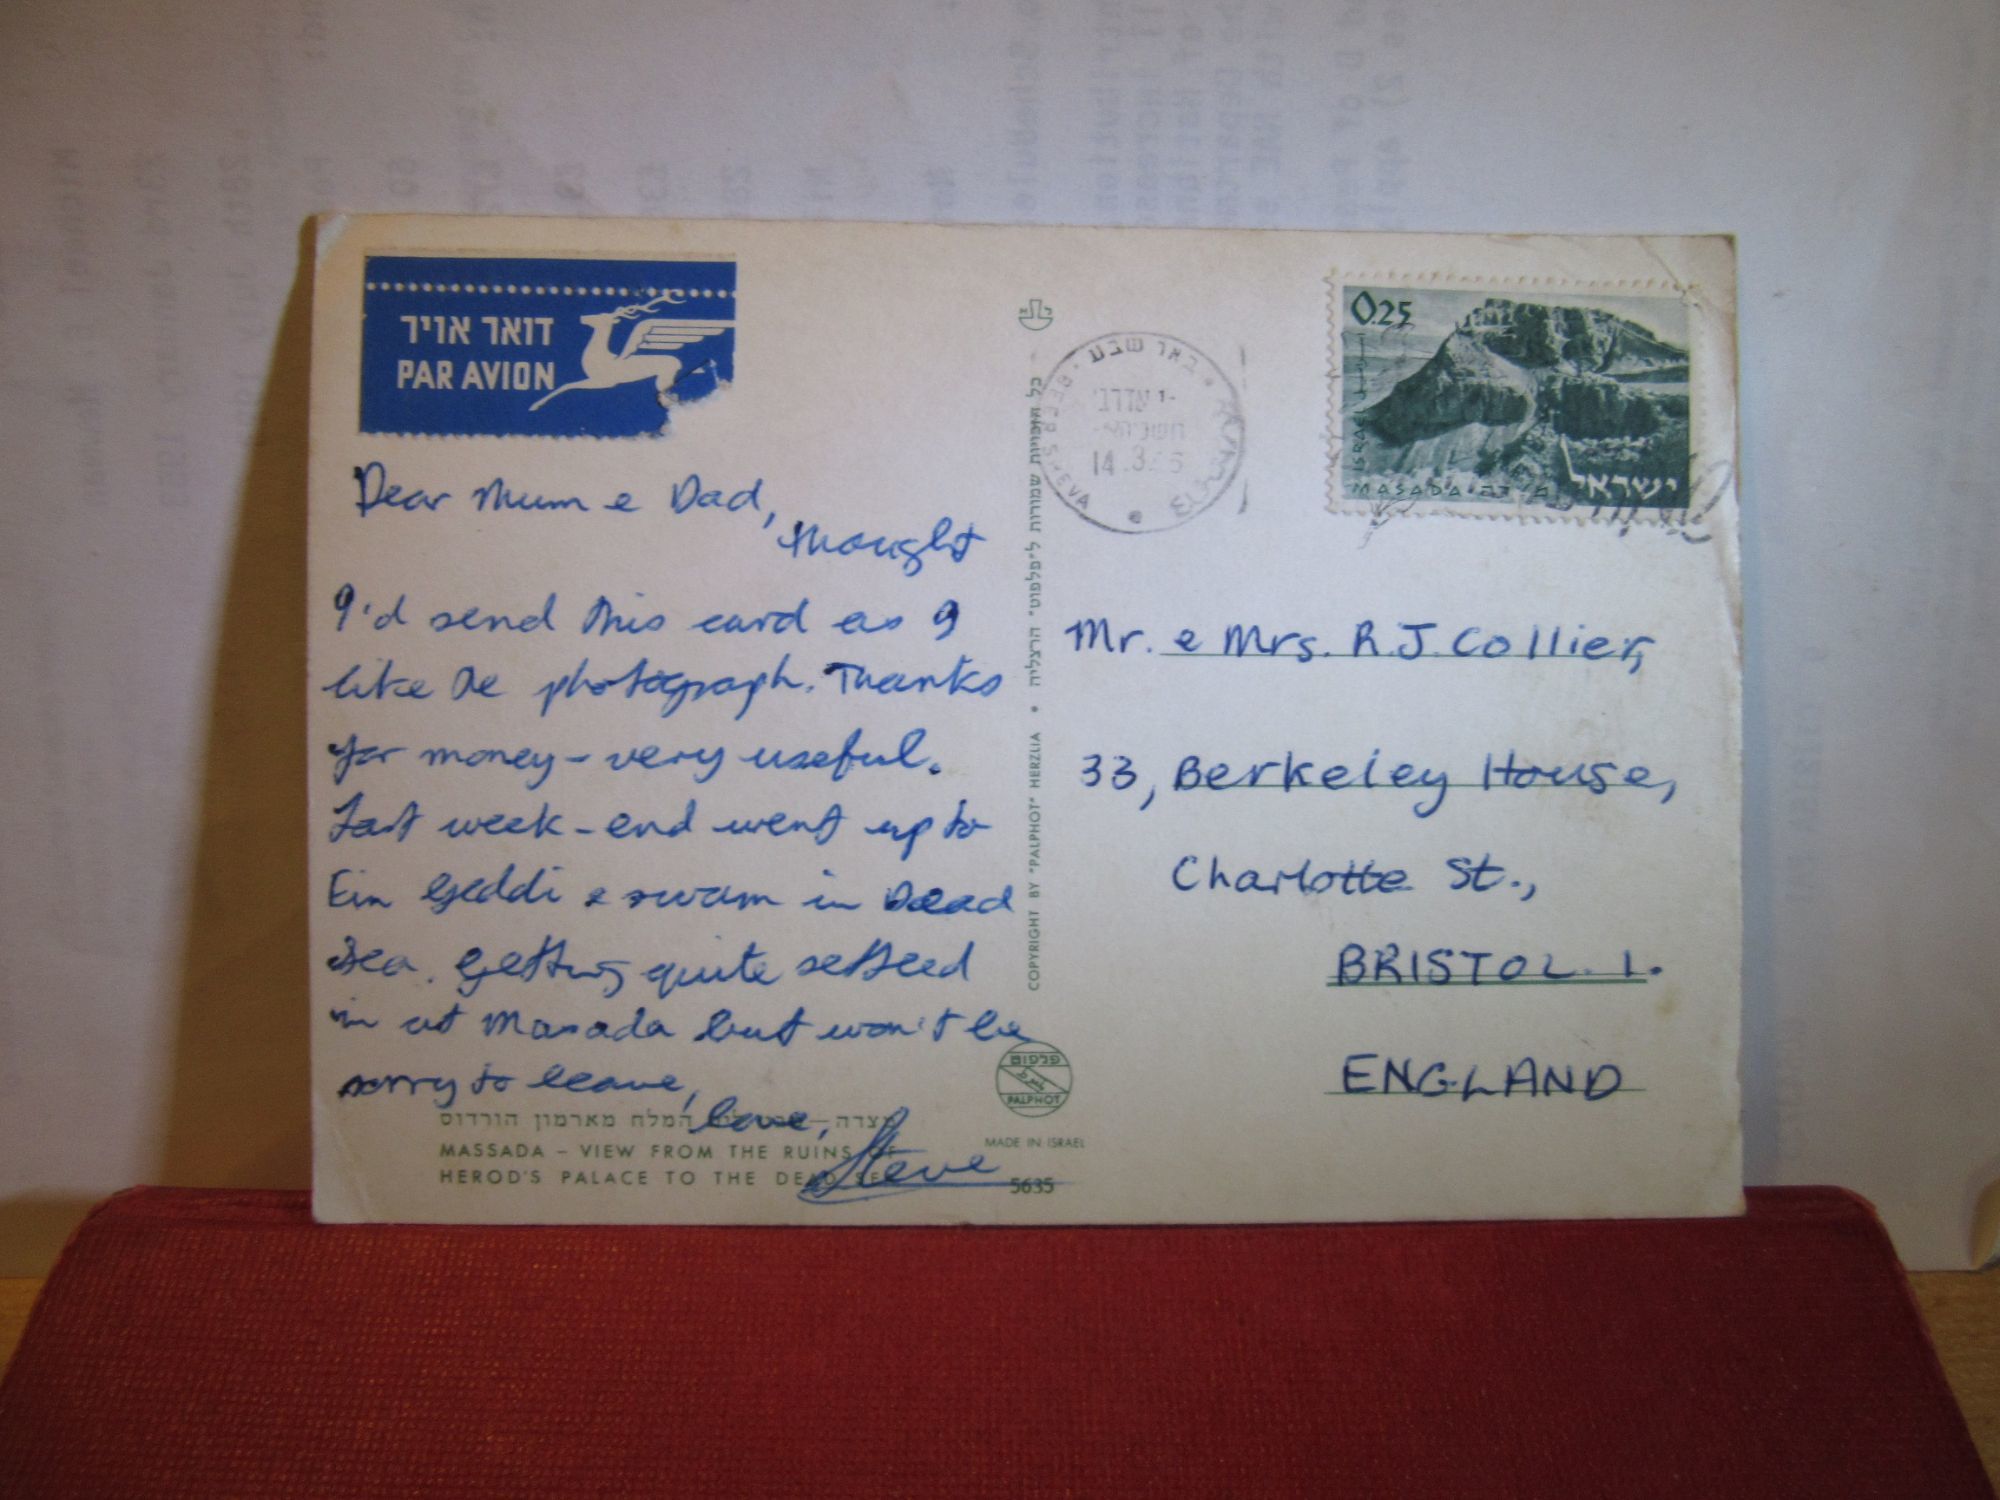 דואר אויר
PAR AVION
Dear Mum & Dad,
thought
I'd send this card as I
like the photograph. Thanks
for money - very useful.
Last week-end went up to
Ein Geddi & swam in Dead
Sea. Getting quite settled
in at Masada but won't be
sorry to leave,
love,
Steve
מצדה – המלח מארמון הורדוס
MASSADA – VIEW FROM THE RUINS OF
HEROD'S PALACE TO THE DEAD SEA
5635
MADE IN ISRAEL
פלפוט
PALPHOT
COPYRIGHT BY "PALPHOT" HERZLIA • כל הזכויות שמורות ל"פלפוט" הרצליה
באר שבע
BEER SHEVA
14.3
0.25
ISRAEL
MASADA מצדה
ישראל
Mr. & Mrs. R.J. Collier,
33, Berkeley House,
Charlotte St.,
BRISTOL. 1.
ENGLAND